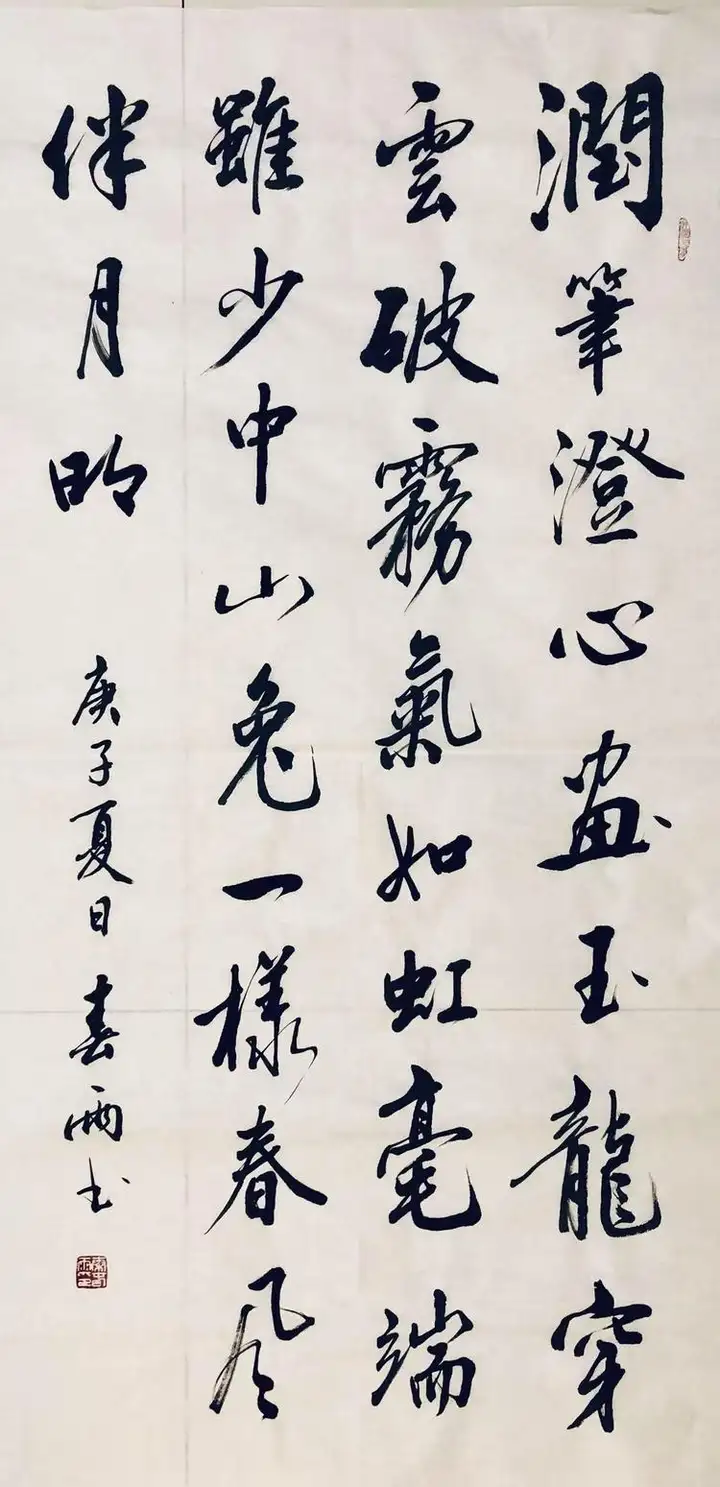 潤筆澄心畫玉龍穿
雲破霧氣如虹毫端
雖少中山兔一樣春風
伴月明
庚子夏日春雨书